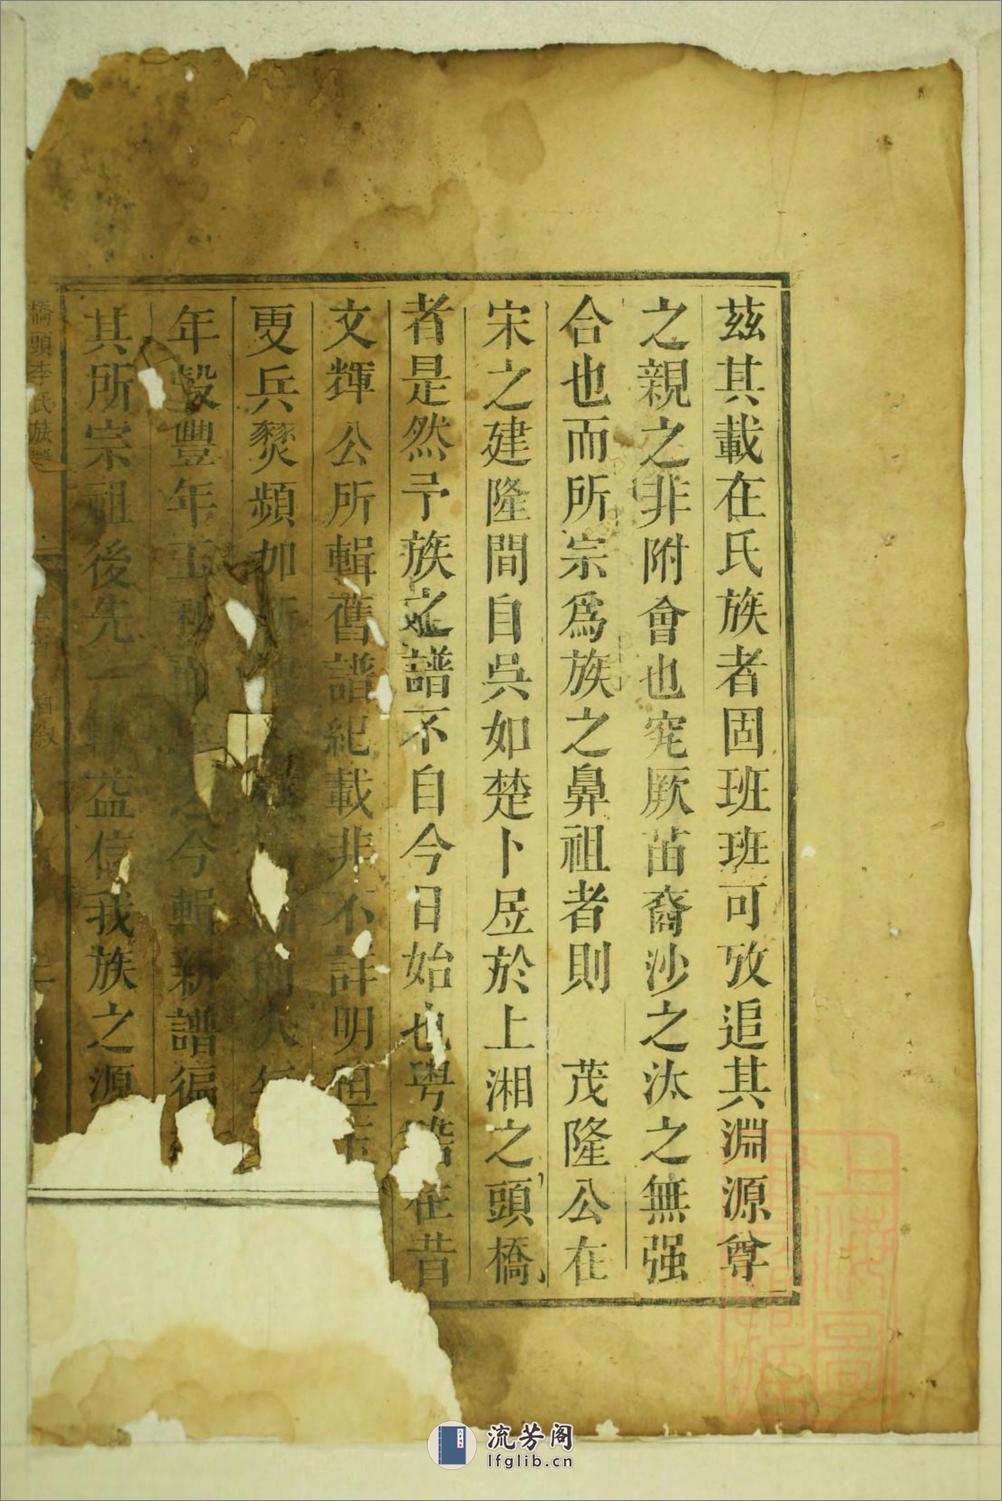 茲其載在氏族者固班班可攷追其淵源尊
之親之非附會也究厥苗裔沙之汰之無强
合也而所宗爲族之鼻祖者則　茂隆公在
宋之建隆間自吳如楚卜居於上湘之頭橋
者是然予族之譜不自今日始也粤稽在昔
文輝公所輯舊譜紀載非不詳明但
叓兵燹頻加
年穀豐年　今輯新譜徧
其所宗祖後先一　益信我族之源
橋頭李氏族譜
上海圖書館藏
流芳阁
lfglib.cn